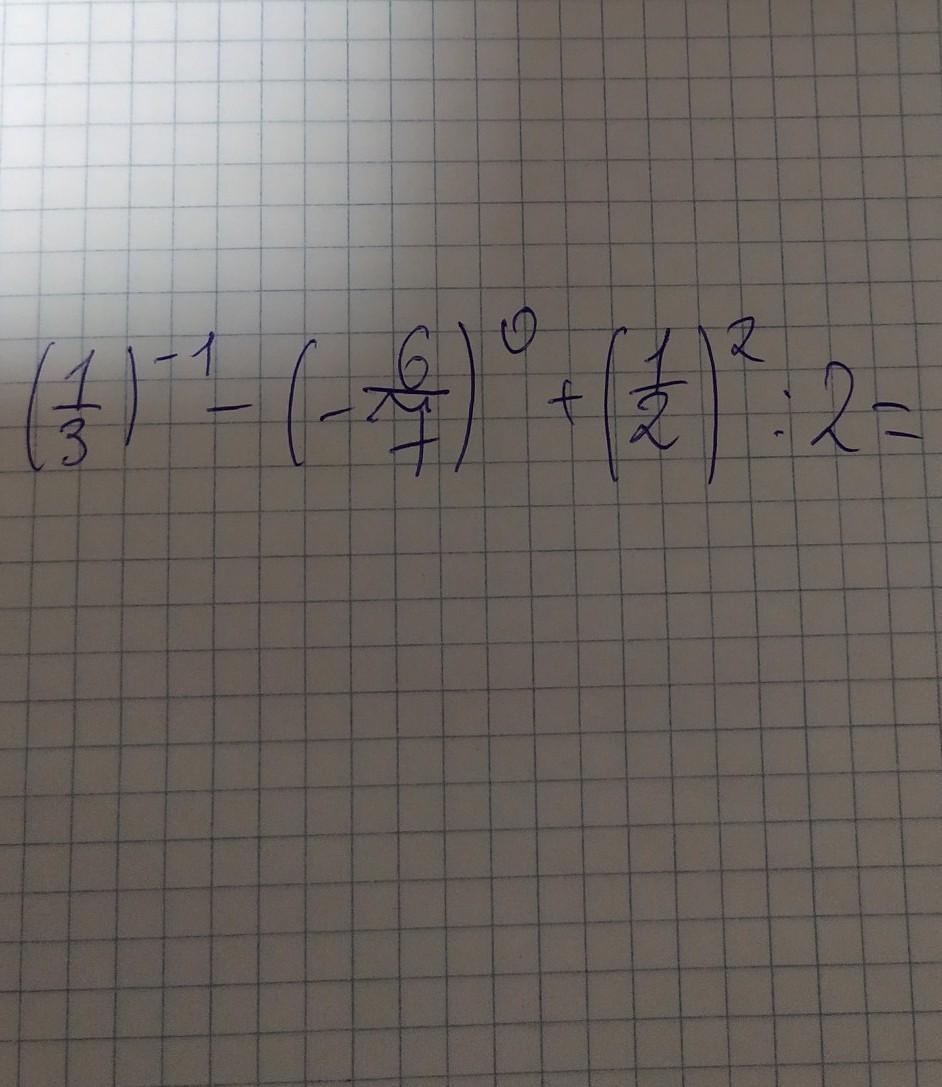 (1/3)^-1 - (-6/7)^0 + (1/2)^2 : 2 =